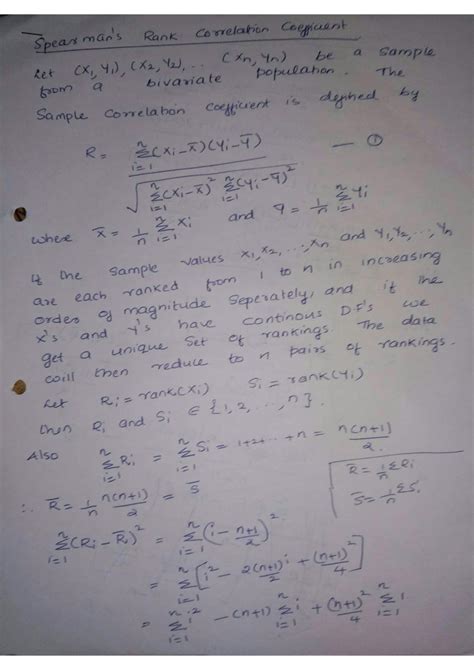 Spearman's Rank Correlation Coefficient
Let (X₁, Y₁), (X₂, Y₂), .. (Xn, Yn) be a sample
from a bivariate population. The
Sample Correlation Coefficient is defined by
R = Σ(i=1 to n) (Xi - X̄)(Yi - Ȳ) / √(Σ(i=1 to n) (Xi - X̄)² Σ(i=1 to n) (Yi - Ȳ)²) — ①
where X̄ = 1/n Σ(i=1 to n) Xi and Ȳ = 1/n Σ(i=1 to n) Yi
If the Sample values X₁, X₂, ..., Xn and Y₁, Y₂, ..., Yn
are each ranked from 1 to n in increasing
order of magnitude Seperately, and if the
X's and Y's have continous DF's we
get a unique Set of rankings. The data
will then reduce to n pairs of rankings.
Let Ri = rank(Xi) Si = rank(Yi)
then Ri and Si ∈ {1, 2, ..., n}.
Also Σ(i=1 to n) Ri = Σ(i=1 to n) Si = 1+2+ .. +n = n(n+1)/2.
∴ R̄ = 1/n n(n+1)/2 = S̄
R̄ = 1/n ΣRi
S̄ = 1/n ΣSi
Σ(i=1 to n) (Ri - R̄)² = Σ(i=1 to n) (i - (n+1)/2)²
= Σ(i=1 to n) [i² - 2(n+1)/2 i + (n+1)²/4]
= Σ(i=1 to n) i² - (n+1) Σ(i=1 to n) i + (n+1)²/4 Σ(i=1 to n) 1